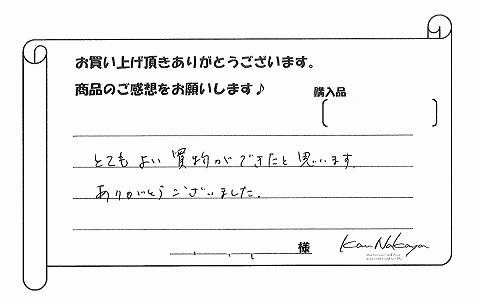 お買い上げ頂きありがとうございます。
商品のご感想をお願いします♪
購入品
とてもよい買物ができたと思います。
ありがとうございました.
様
Kan Nakaya